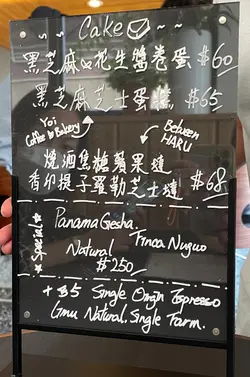 Cake ~ ~
黑芝麻&花生醬卷蛋 $60
黑芝麻芝士蛋糕 $65
Yoi
Coffee & Bakery
Between
HARU
燒酒焦糖蘋果撻
香印提子羅勒芝士撻 $68
★ Special ★
Panama Gesha.
Finca Nuguo
Natural
$250
+ $5 Single Origin Espresso
Gmu Natural. Single Farm.